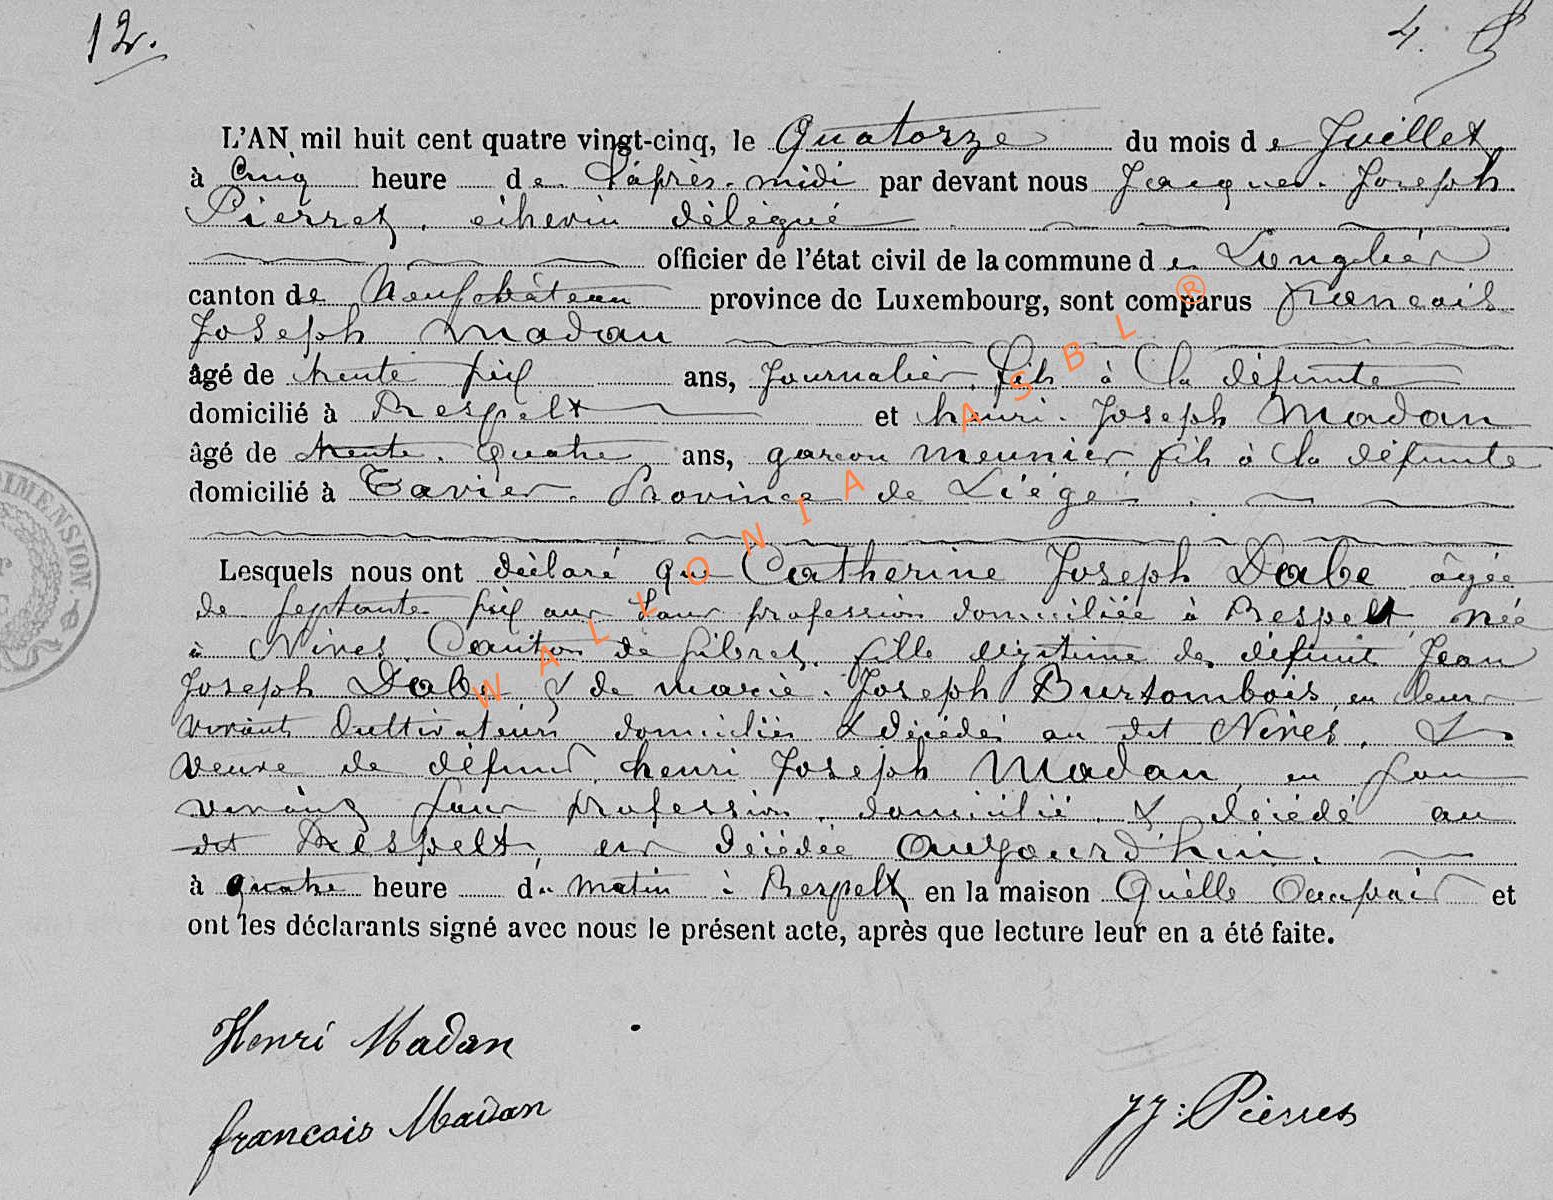 12.
4.
L'AN mil huit cent quatre vingt-cinq, le Quatorze du mois de Juillet
à Cinq heure de L'après-midi par devant nous Jacques. Joseph
Pierret, echevin délégué
officier de l'état civil de la commune de Longlier
canton de Neufchâteau province de Luxembourg, sont comparus francois
Joseph Madan
âgé de trente six ans, Journalier, fils à la défunte
domicilié à Respelt et henri. Joseph Madan
âgé de trente. quatre ans, garcon meunier, fils à la défunte
domicilié à Tavier. Province de Liége
Lesquels nous ont déclaré que Catherine Joseph Dabe âgée
de septante six ans sans profession domiciliée à Respelt, née
à Nives, Canton de Sibret, fille légitime des défunts Jean
Joseph Dabe & de marie. Joseph Burtombois, en leur
vivants Cultivateurs domiciliés & décédés au dit Nives, &
veuve de défunt, henri Joseph Madan, en son
vivant sans profession, domicilié & décédé au
dit Respelt, est décédée aujourd'hui.
à quatre heure du matin à Respelt en la maison Quèlle Occupait et
ont les déclarants signé avec nous le présent acte, après que lecture leur en a été faite.
Henri Madan
francois Madan
JJ: Pierret
DIMENSION.
WALLONIA ASBL ®